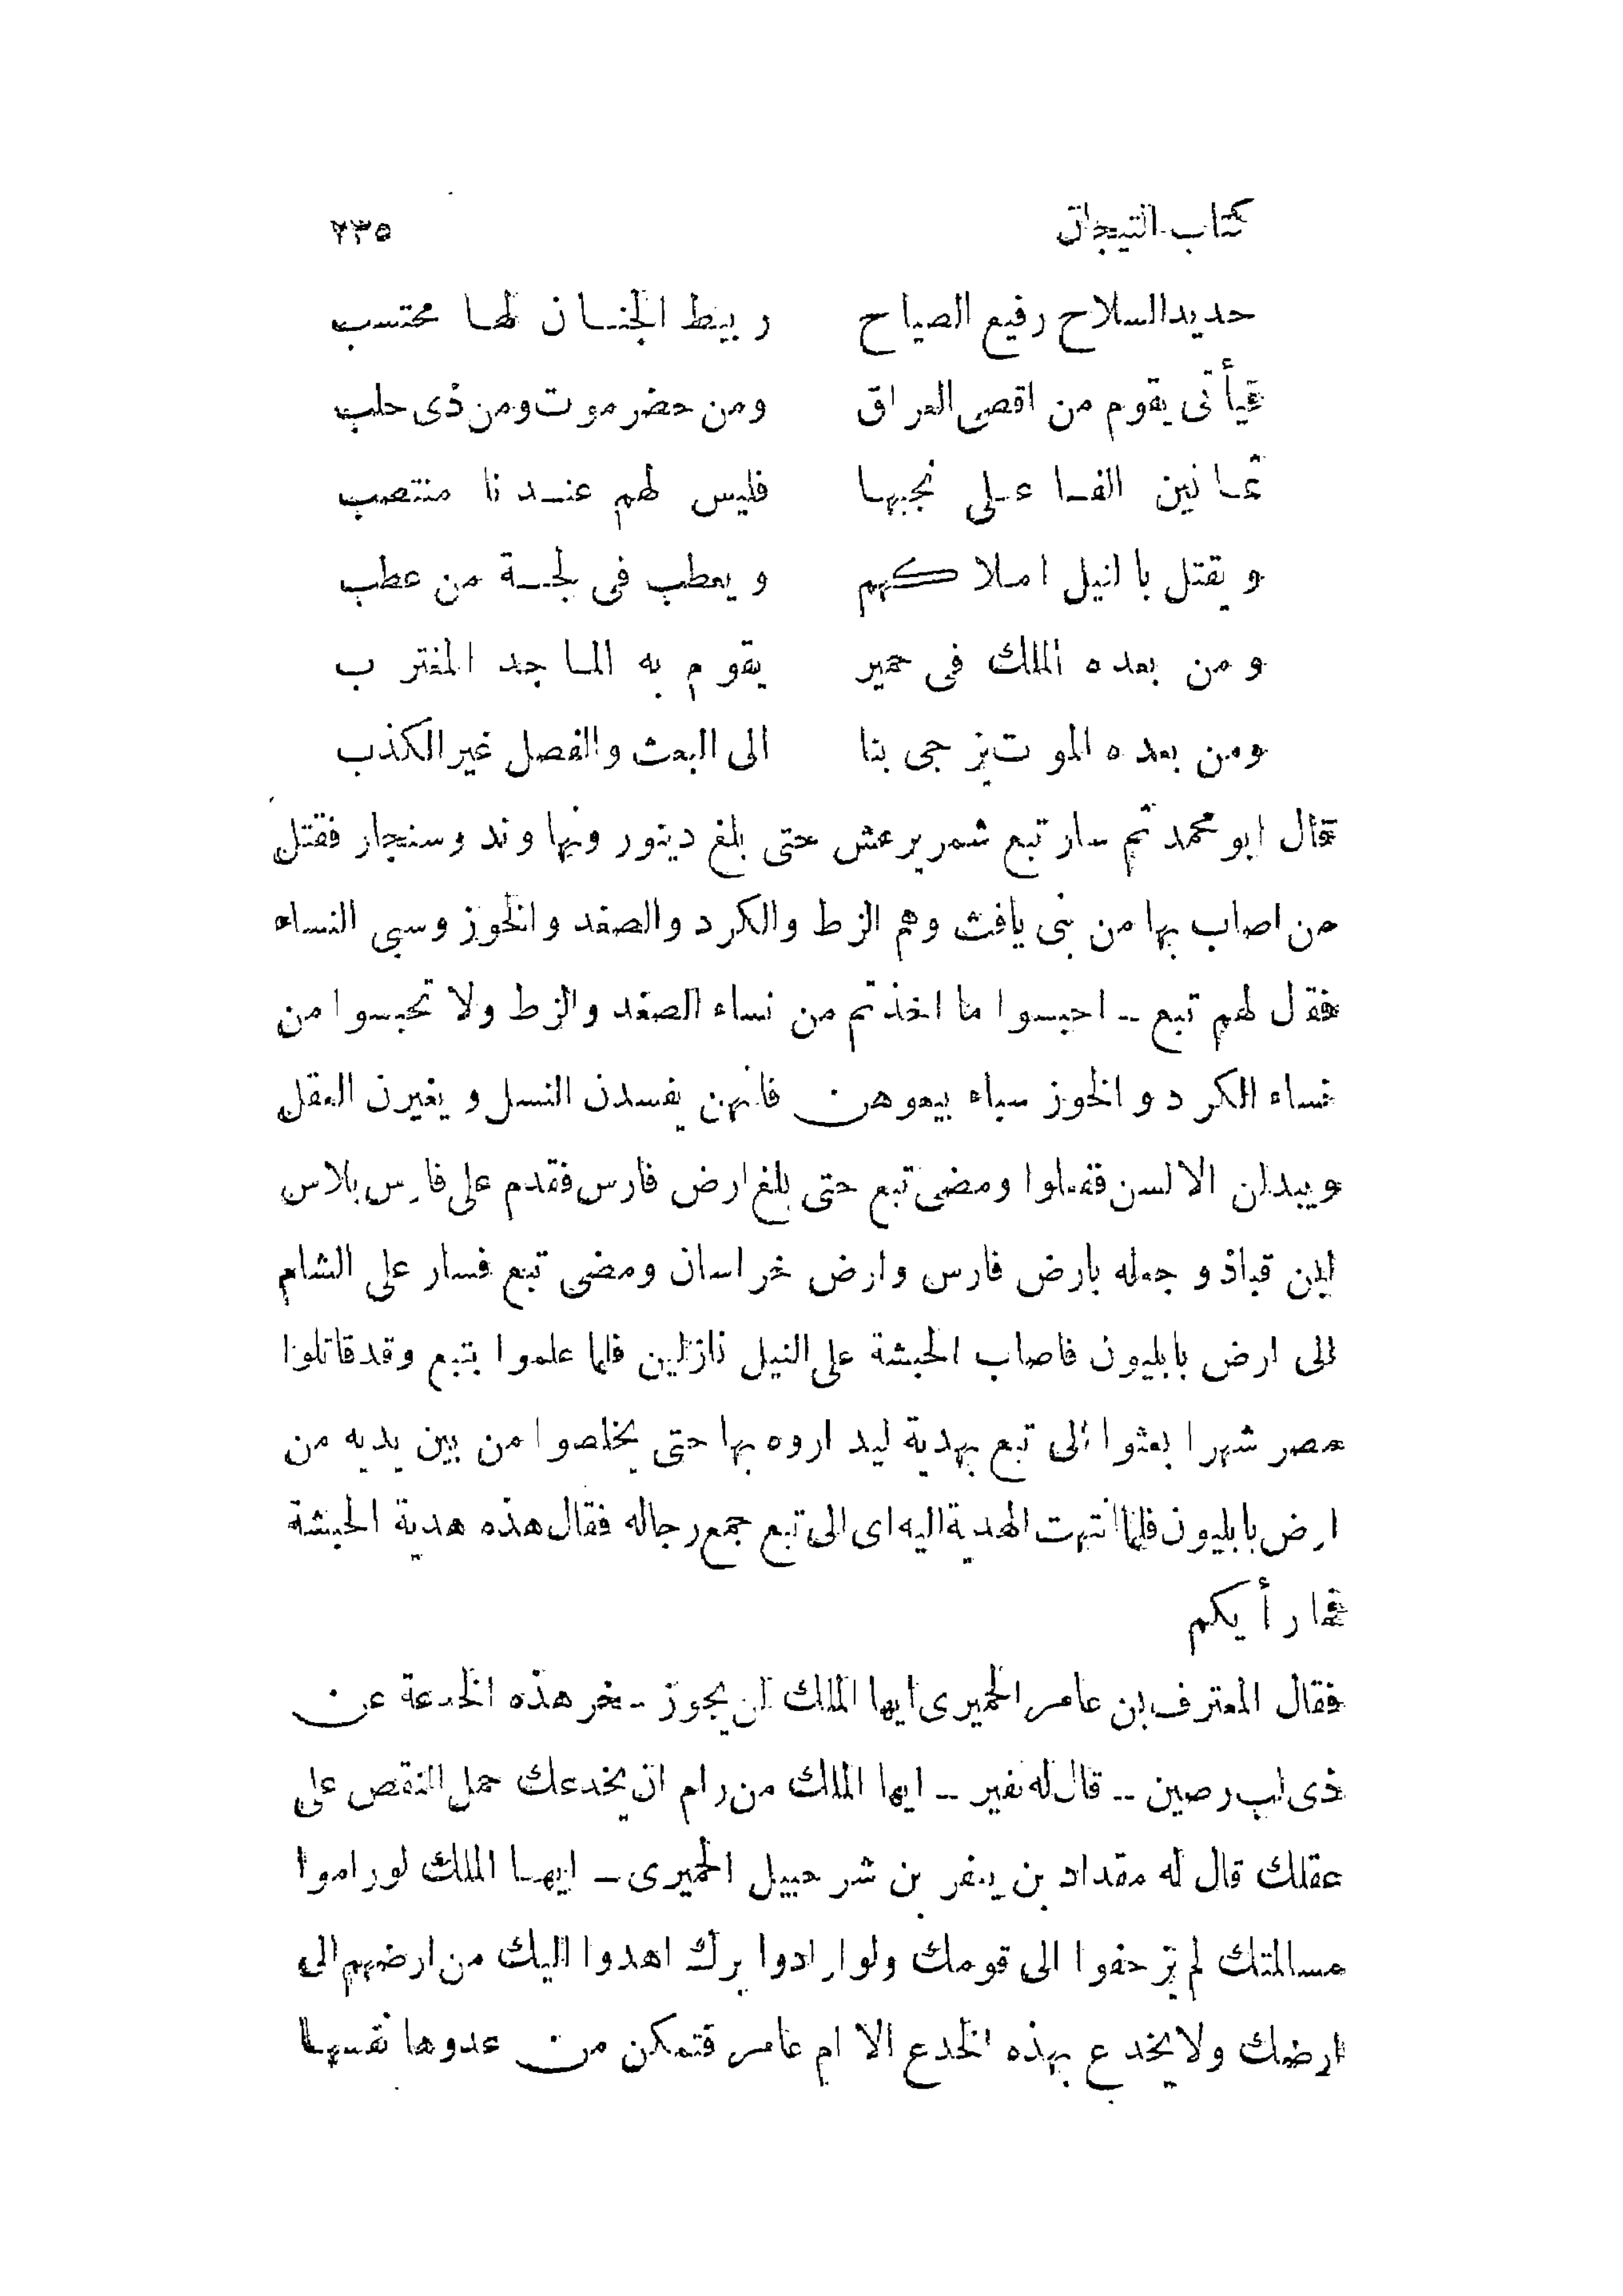 كتاب التيجان ٢٣٥
حديد السلاح رفيع الصياح ربيط الجنان لها محتسب
فيأتى يقوم من اقصى العراق ومن حضرموت ومن ذى حلب
ثمانين الفا على نجبها فليس لهم عندنا منتصب
ويقتل بالنيل املاكهم ويعطب فى لجة من عطب
ومن بعده الملك فى حمير يقوم به الماجد المغترب
ومن بعده الموت يزجى بنا الى البعث والفصل غير الكذب
قال ابو محمد ثم سار تبع شمر يرعش حتى بلغ دينور ونهاوند وسنجار فقتل
من اصاب بها من بنى يافث وهم الزط والكرد والصغد والخوز وسبى النساء
فقال لهم تبع ـ احبسوا ما اخذتم من نساء الصغد والزط ولا تحبسوا من
نساء الكرد والخوز سباء بيعوهن فانهن يفسدن النسل ويغيرن العقل
ويبدلن الالسن ففعلوا ومضى تبع حتى بلغ ارض فارس فقدم على فارس بلاس
ابن قباذ وجعله بارض فارس وارض خراسان ومضى تبع فسار على الشام
الى ارض بابليون فاصاب الحبشة على النيل نازلين فلما علموا بتبع وقد قاتلوا
مصر شهرا بعثوا الى تبع بهدية ليداروه بها حتى يخلصوا من بين يديه من
ارض بابليون فلما انتهت الهدية اليه اى الى تبع جمع رجاله فقال هذه هدية الحبشة
فما رأيكم
فقال المعترف بن عامر الحميرى ايها الملك لن يجوز هذه الخدعة عن
ذى لب رصين ـ قال له نفير ـ ايها الملك من رام ان يخدعك حمل النقص على
عقلك قال له مقداد بن ينفر بن شرحبيل الحميرى ـ ايها الملك لو راموا
مسالمتك لم يزحفوا الى قومك ولو ارادوا برك اهدوا اليك من ارضهم الى
ارضك ولا يخدع بهذه الخدع الا ام عامر فتمكن من عدوها نفسها